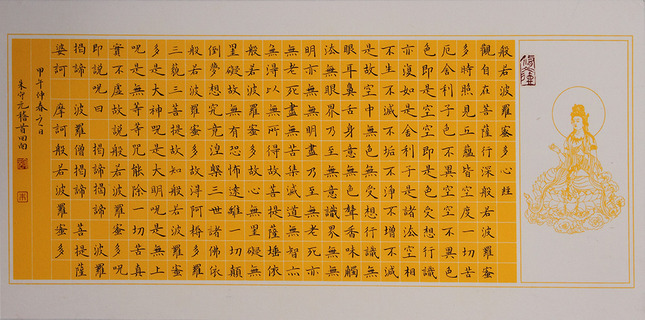 般若波羅蜜多心経
觀自在菩薩行深般若波羅蜜
多時照見五蘊皆空度一切苦
厄舍利子色不異空空不異色
色即是空空即是色受想行識
亦復如是舍利子是諸法空相
不生不滅不垢不淨不增不減
是故空中無色無受想行識無
眼耳鼻舌身意無色聲香味觸
法無眼界乃至無意識界無無
明亦無無明盡乃至無老死亦
無老死盡無苦集滅道無智亦
無得以無所得故菩提薩埵依
般若波羅蜜多故心無罣礙無
罣礙故無有恐怖遠離一切顛
倒夢想究竟涅槃三世諸佛依
般若波羅蜜多故得阿耨多羅
三藐三菩提故知般若波羅蜜
多是大神呪是大明呪是無上
呪是無等等呪能除一切苦真
實不虛故說般若波羅蜜多呪
即說呪曰 揭諦揭諦 波羅
揭諦 波羅僧揭諦 菩提薩
婆訶 摩訶般若波羅蜜多
甲午仲春之日
朱守元稽首回向
朱